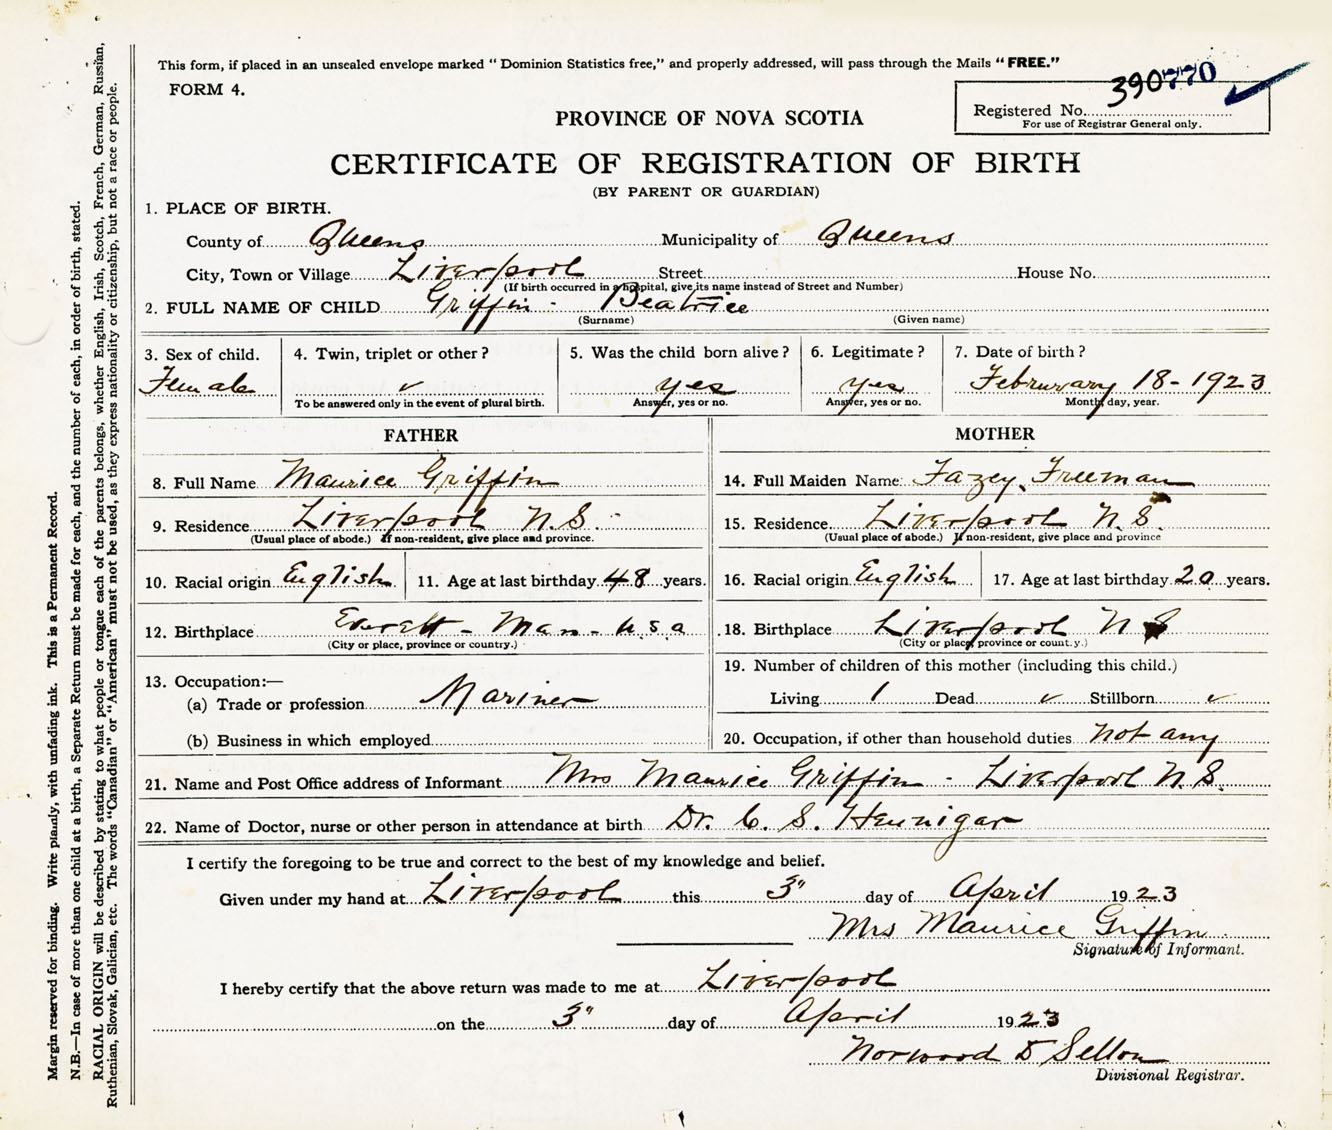 This form, if placed in an unsealed envelope marked "Dominion Statistics free," and properly addressed, will pass through the Mails "FREE."
FORM 4.
390770
Registered No.
For use of Registrar General only.
PROVINCE OF NOVA SCOTIA
CERTIFICATE OF REGISTRATION OF BIRTH
(BY PARENT OR GUARDIAN)
1. PLACE OF BIRTH.
County of Queens Municipality of Queens
City, Town or Village Liverpool Street House No.
(If birth occurred in a hospital, give its name instead of Street and Number)
2. FULL NAME OF CHILD Griffin - Beatrice
(Surname) (Given name)
3. Sex of child. 4. Twin, triplet or other? 5. Was the child born alive? 6. Legitimate? 7. Date of birth?
Female ✓ yes yes Februrary 18 - 1923
To be answered only in the event of plural birth. Answer, yes or no. Answer, yes or no. Month, day, year.
FATHER MOTHER
8. Full Name Maurice Griffin 14. Full Maiden Name Fazey Freeman
9. Residence Liverpool N.S. 15. Residence Liverpool N.S.
(Usual place of abode.) If non-resident, give place and province. (Usual place of abode.) If non-resident, give place and province
10. Racial origin English 11. Age at last birthday 48 years. 16. Racial origin English 17. Age at last birthday 20 years.
12. Birthplace Everett - Mass - U.S.a 18. Birthplace Liverpool N S
(City or place, province or country.) (City or place, province or country.)
19. Number of children of this mother (including this child.)
13. Occupation:—
(a) Trade or profession Mariner Living 1 Dead ✓ Stillborn ✓
(b) Business in which employed 20. Occupation, if other than household duties not any
21. Name and Post Office address of Informant Mrs Maurice Griffin - Liverpool N.S.
22. Name of Doctor, nurse or other person in attendance at birth Dr. C. S. Hennigar
I certify the foregoing to be true and correct to the best of my knowledge and belief.
Given under my hand at Liverpool this 3" day of April 1923
Mrs Maurice Griffin
Signature of Informant.
I hereby certify that the above return was made to me at Liverpool
on the 3" day of April 1923
Norwood D Sellon
Divisional Registrar.
Margin reserved for binding. Write plainly, with unfading ink. This is a Permanent Record.
N.B.—In case of more than one child at a birth, a Separate Return must be made for each, and the number of each, in order of birth, stated.
RACIAL ORIGIN will be described by stating to what people or tongue each of the parents belongs, whether English, Irish, Scotch, French, German, Russian,
Ruthenian, Slovak, Galician, etc. The words "Canadian" or "American" must not be used, as they express nationality or citizenship, but not a race or people.